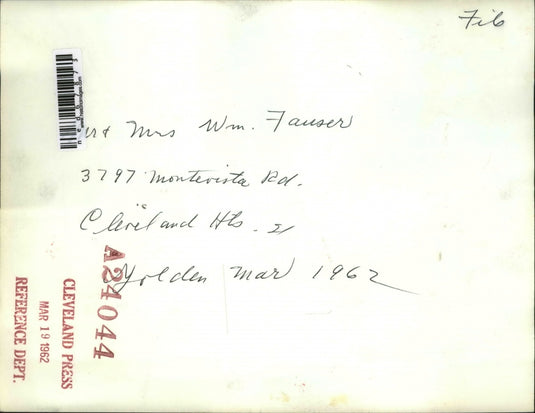 Fib
Mr & Mrs Wm. Fauser
3797 Montevista Rd.
Cleveland Hts. 21
Golden Mar 1962
A24044
CLEVELAND PRESS
MAR 19 1962
REFERENCE DEPT.